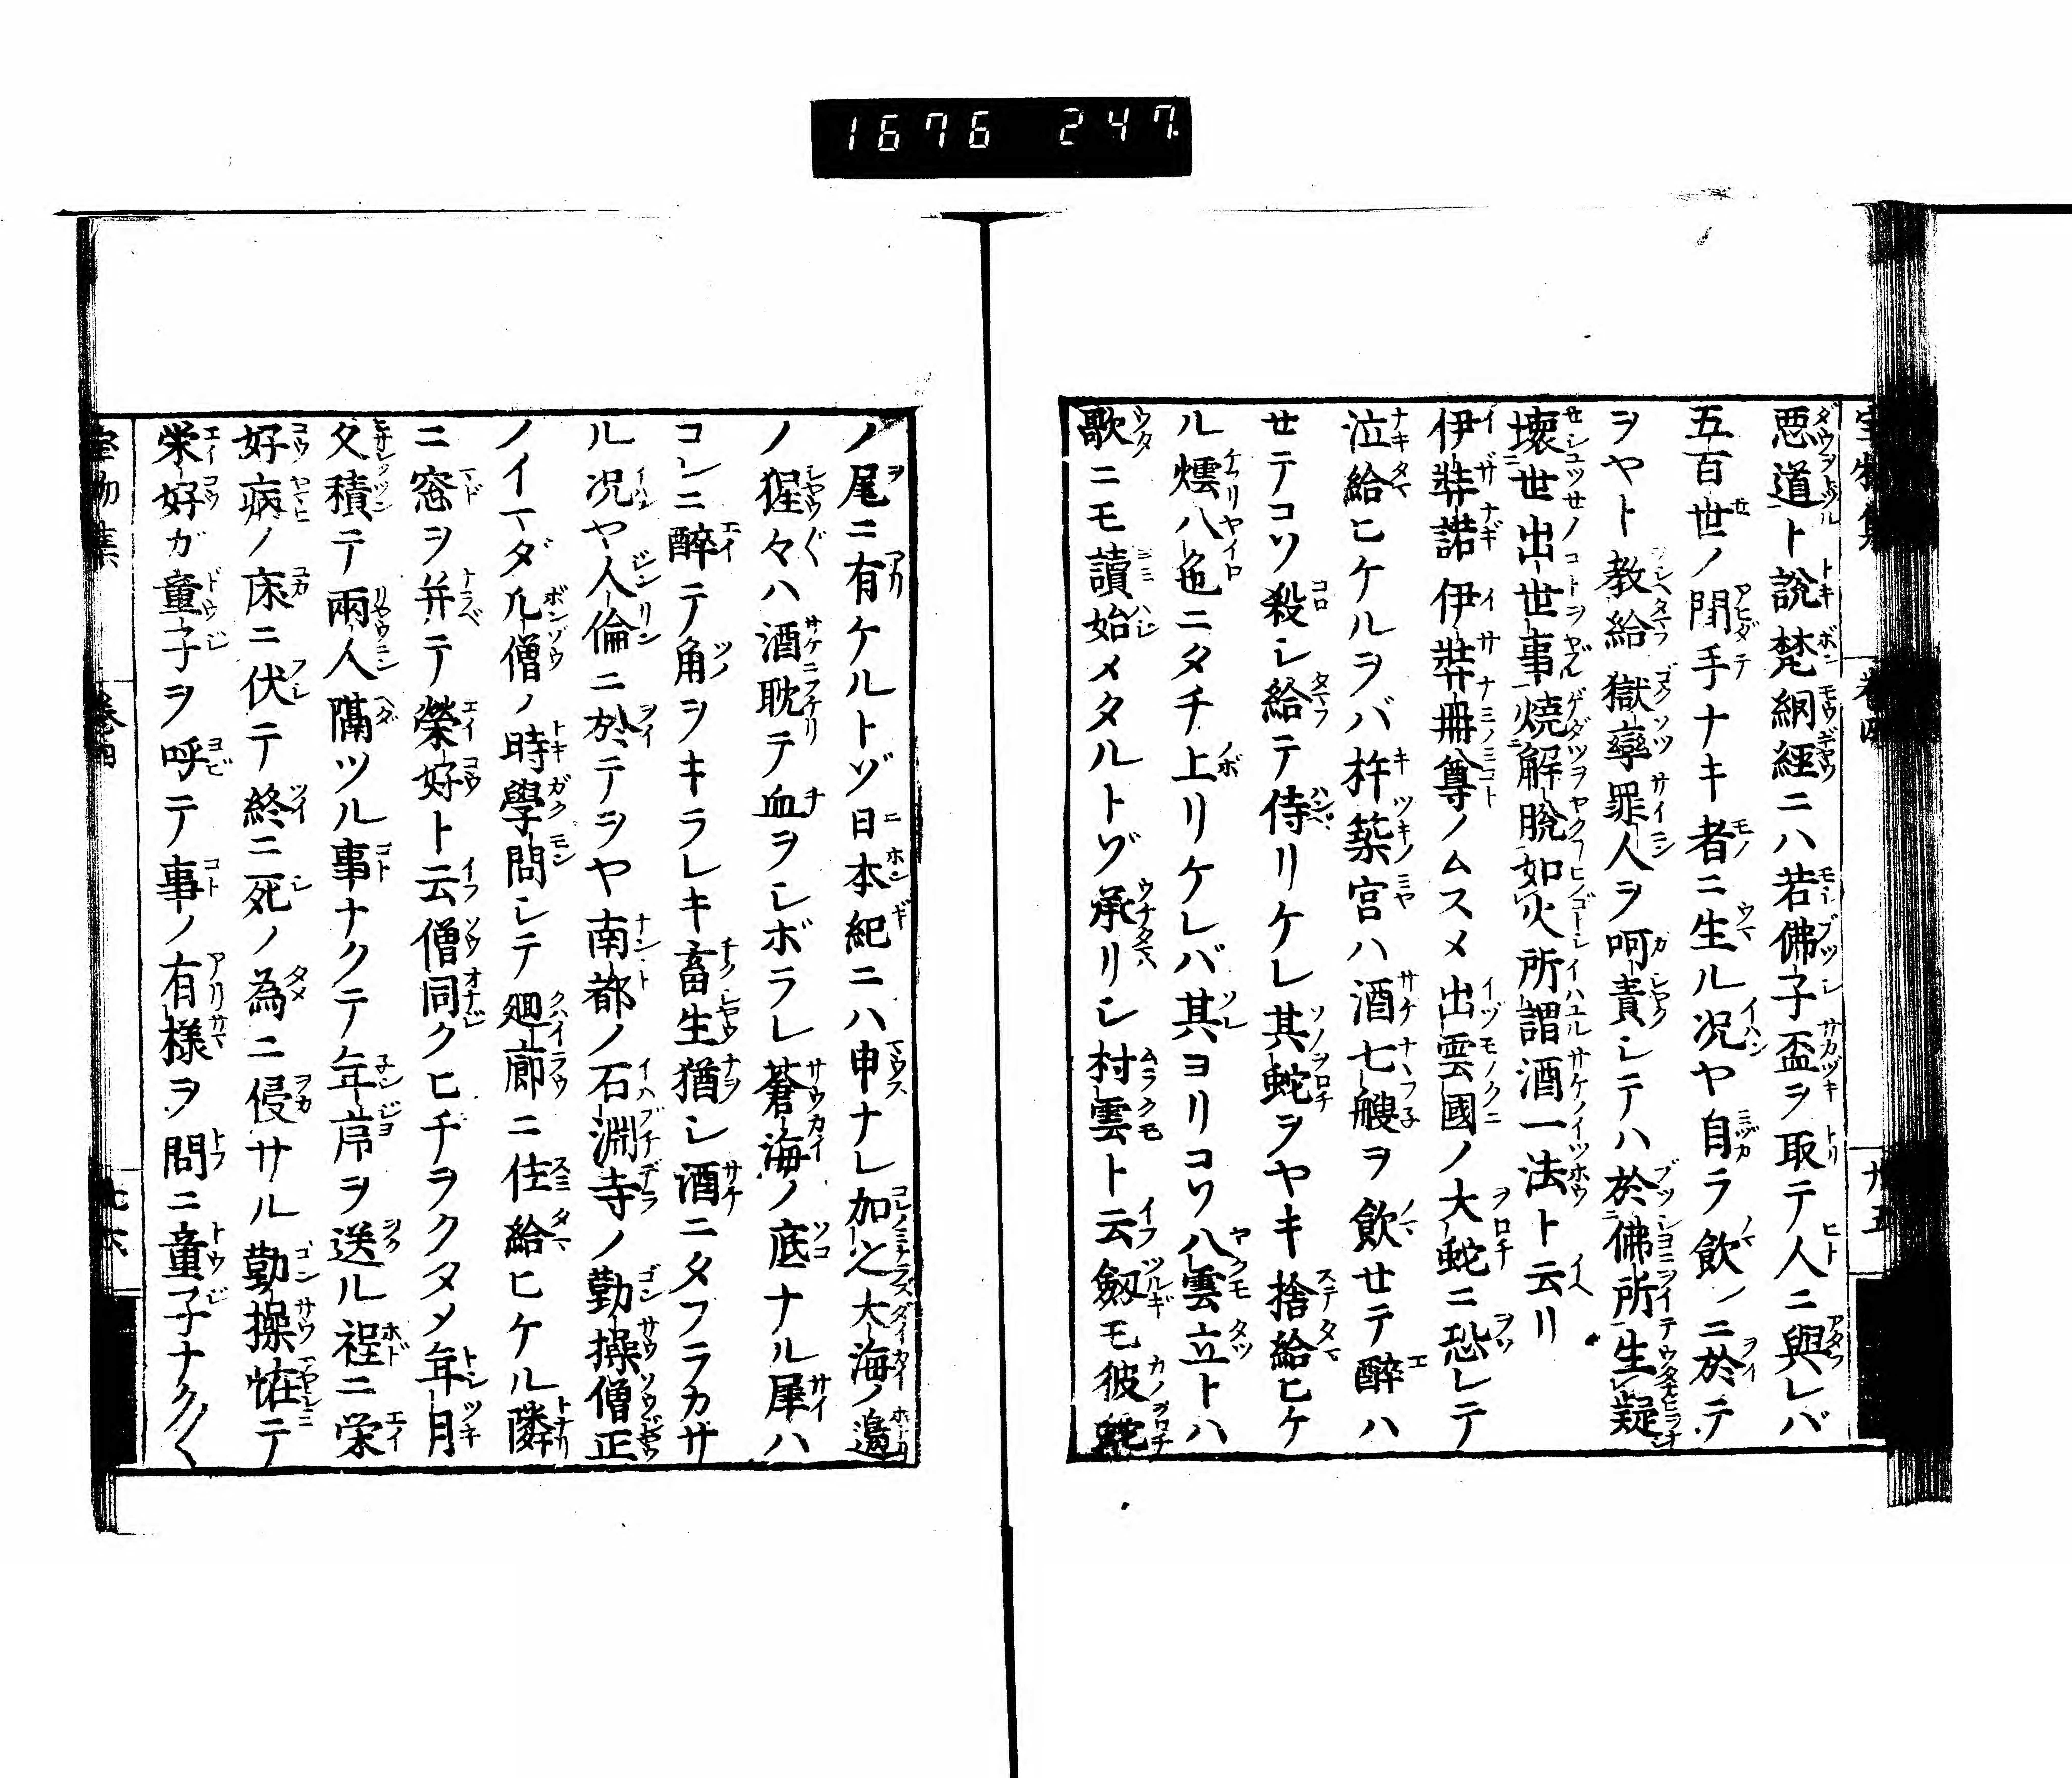 1676 247.
悪道ト説梵網經ニハ若佛子盃ヲ取テ人ニ與レバ
五百世ノ間手ナキ者ニ生ル况ヤ自ラ飲ンニ於テ
ヲヤト教給獄率罪人ヲ呵責シテハ於佛所生疑
壊世出世事焼解脱如火所謂酒一法ト云リ
伊弉諾伊弉冊尊ノムスメ出雲國ノ大蛇ニ恐レテ
泣給ヒケルヲバ杵築宮ハ酒七艘ヲ飲セテ醉ハ
セテコソ殺シ給テ侍リケレ其蛇ヲヤキ捨給ヒケ
ル煙八色ニタチ上リケレバ其ヨリコソ八雲立トハ
歌ニモ讀始メタルトゾ承リシ村雲ト云釼モ彼蛇
ノ尾ニ有ケルトゾ日本紀ニハ申ナレ加之大海ノ邉
ノ猩々ハ酒耽テ血ヲシボラレ蒼海ノ底ナル犀ハ
コレニ醉テ角ヲキラレキ畜生猶シ酒ニタフラカサ
ル况ヤ人倫ニ於テヲヤ南都ノ石淵寺ノ勤操僧正
ノイマダ凡僧ノ時學問シテ廻廊ニ住給ヒケル隣
ニ窓ヲ并テ榮好ト云僧同クヒチヲクタメ年月
久積テ兩人隔ツル事ナクテ年序ヲ送ル程ニ栄
好病ノ床ニ伏テ終ニ死ノ為ニ侵サル勤操恠テ
栄好ガ童子ヲ呼テ事ノ有様ヲ問ニ童子ナク〱